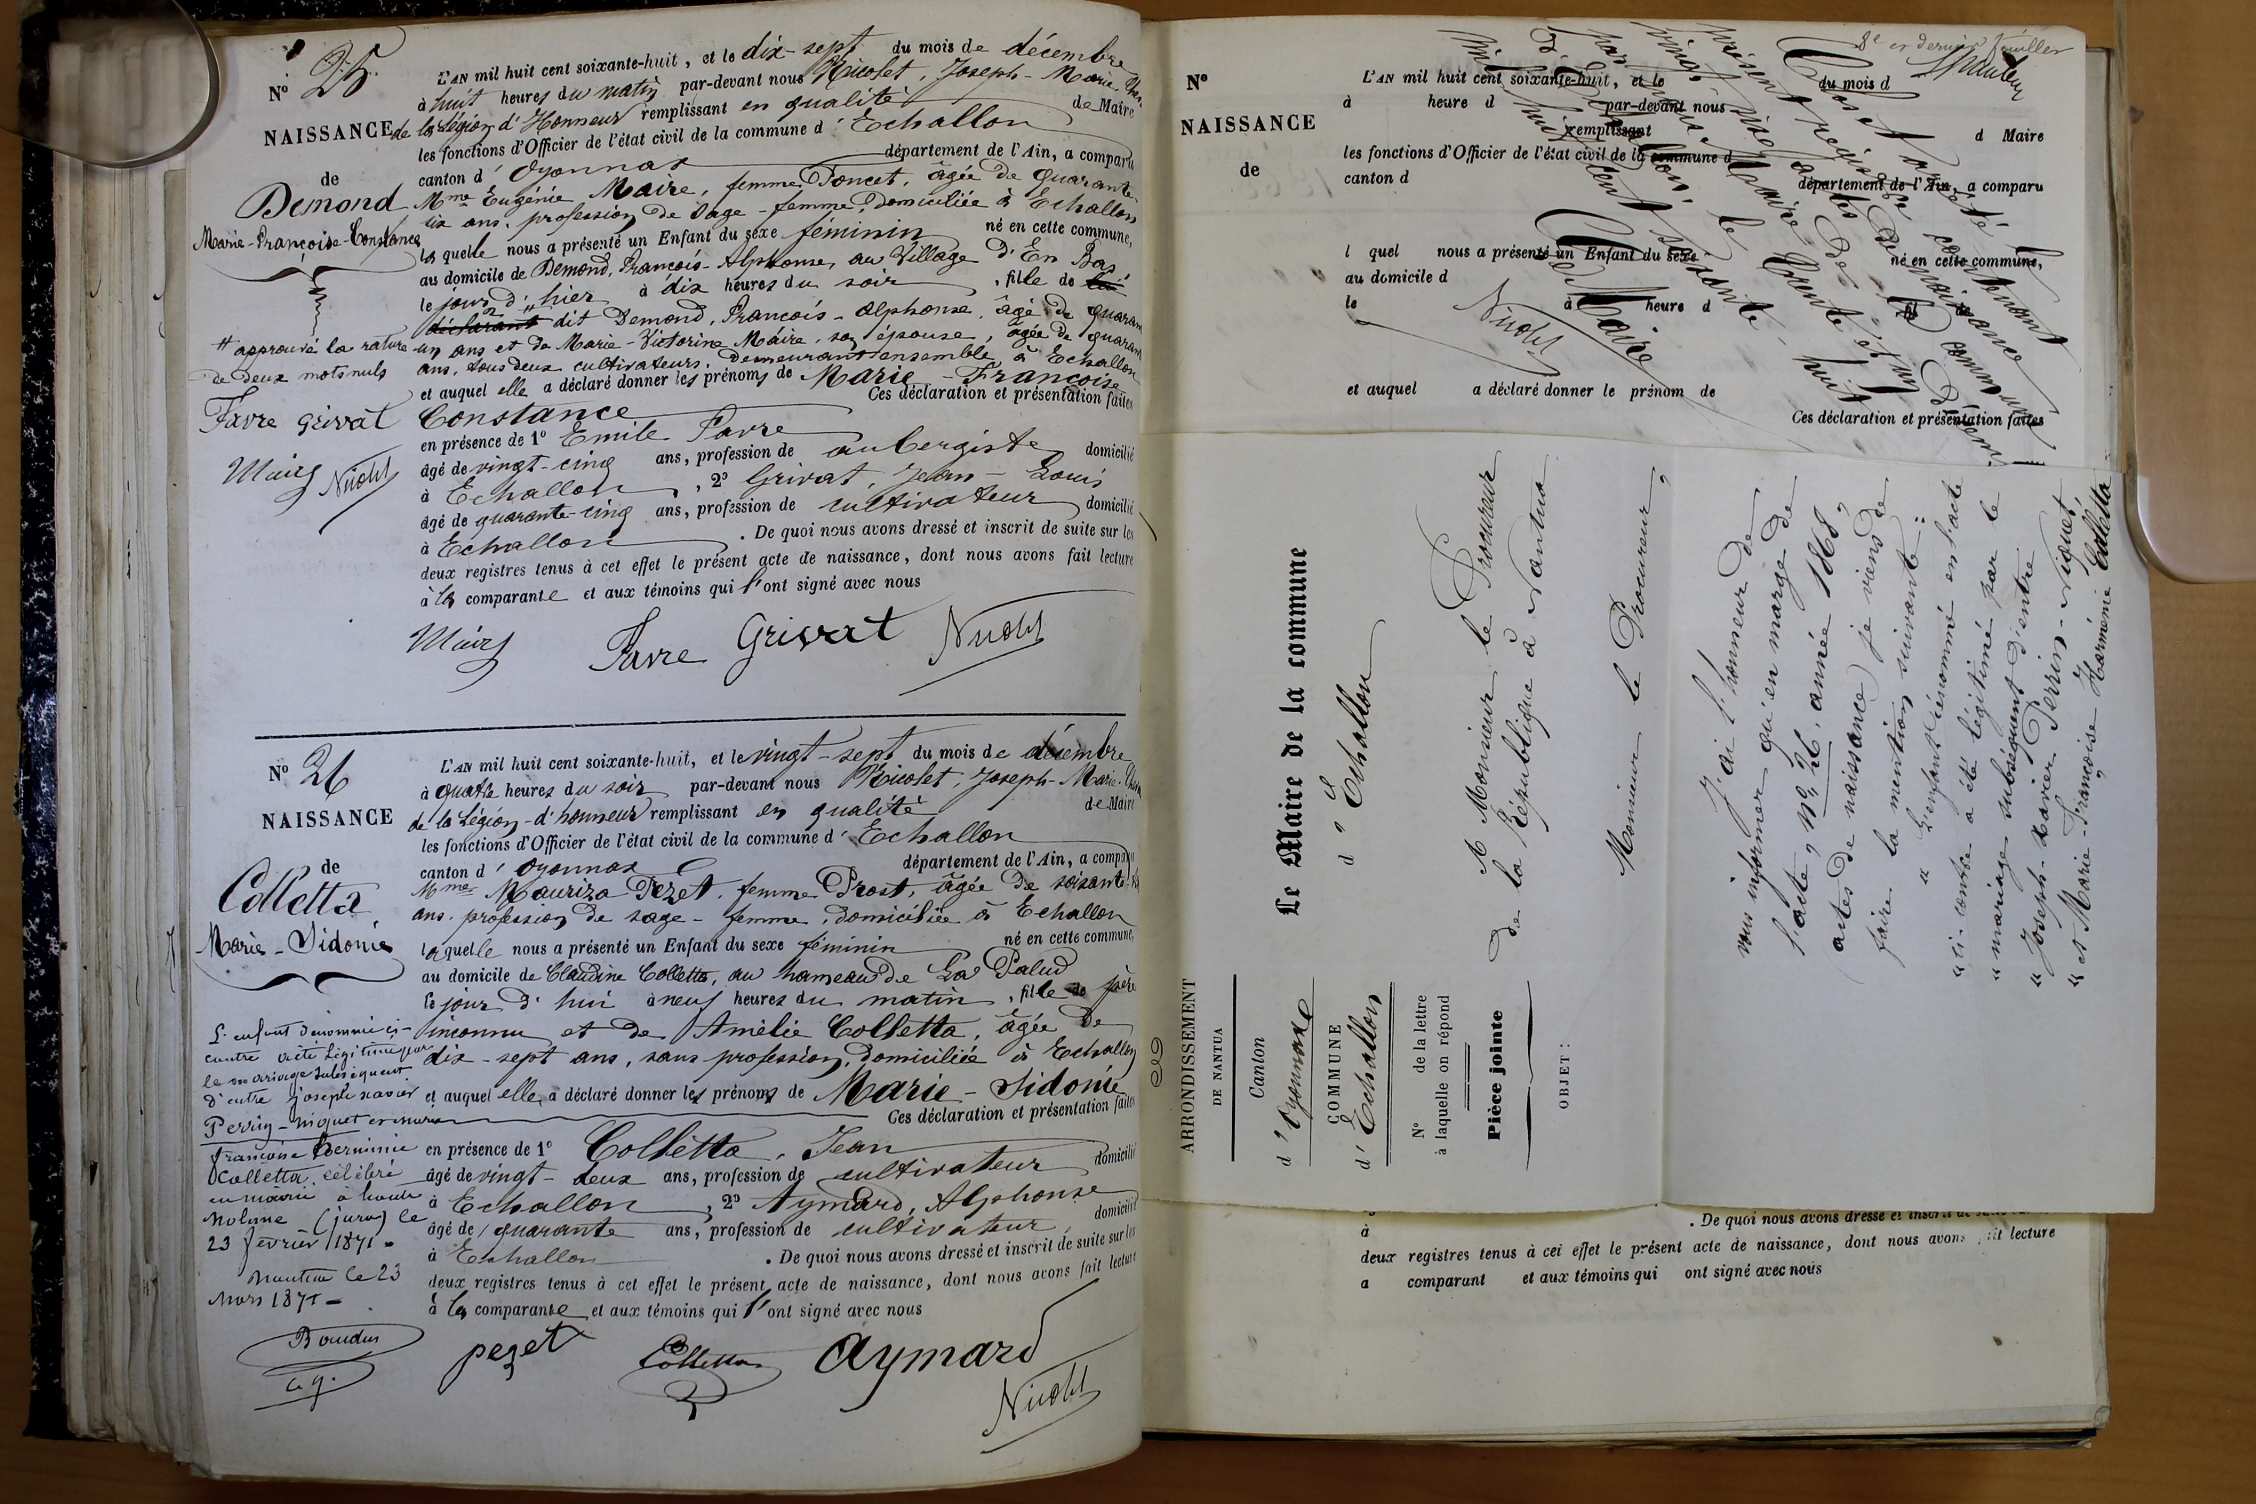 N° 25
NAISSANCE
de
Demond
Marie-Françoise-Constance
L'AN mil huit cent soixante-huit, et le dix-sept du mois de décembre
à huit heures du matin par-devant nous Nicolet, Joseph-Marie, Chev
de la Légion d'Honneur remplissant en qualité de Maire
les fonctions d'Officier de l'état civil de la commune d'Echallon
canton d'Oyonnax département de l'Ain, a comparu
Mme Eugénie Maire, femme Poncet, âgée de quarante-
six ans, profession de sage-femme, domiciliée à Echallon
laquelle nous a présenté un Enfant du sexe féminin né en cette commune,
au domicile de Demond, François-Alphonse, au Village d'En Bas,
le jour d'hier à dix heures du soir, fille de lui
déclarant dit Demond, François-Alphonse, âgé de quaran
un ans et de Marie-Victorine Maire, son épouse, âgée de quaran
ans, tous deux cultivateurs, demeurant ensemble à Echallon
et auquel elle a déclaré donner les prénoms de Marie-Françoise
Constance Ces déclaration et présentation faites
en présence de 1° Emile Favre
âgé de vingt-cinq ans, profession de aubergiste domicilié
à Echallon, 2° Grivat, Jean-Louis
âgé de quarante-cinq ans, profession de cultivateur domicilié
à Echallon. De quoi nous avons dressé et inscrit de suite sur les
deux registres tenus à cet effet le présent acte de naissance, dont nous avons fait lecture
à la comparante et aux témoins qui l'ont signé avec nous
# approuvé la rature
de deux mots nuls
Favre Grivat
Maire Nicolet
Maire Favre Grivat Nicolet
N° 26
NAISSANCE
de
Colletta
Marie-Sidonie
L'AN mil huit cent soixante-huit, et le vingt-sept du mois de décembre
à quatre heures du soir par-devant nous Nicolet, Joseph-Marie, Chev
de la Légion-d'honneur remplissant en qualité de Maire
les fonctions d'Officier de l'état civil de la commune d'Echallon
canton d'Oyonnax département de l'Ain, a comparu
Mme Mauriza Pezet, femme Prost, âgée de soixante-
ans, profession de sage-femme, domiciliée à Echallon
laquelle nous a présenté un Enfant du sexe féminin né en cette commune,
au domicile de Claudine Colletta, au hameau de La Palud
le jour d'hui à neuf heures du matin, fille de père
inconnu et de Amélie Colletta, âgée de
dix-sept ans, sans profession, domiciliée à Echallon
et auquel elle a déclaré donner les prénoms de Marie-Sidonie
Ces déclaration et présentation faites
en présence de 1° Colletta, Jean
âgé de vingt-deux ans, profession de cultivateur domicilié
à Echallon, 2° Aymard, Alphonse
âgé de quarante ans, profession de cultivateur, domicilié
à Echallon. De quoi nous avons dressé et inscrit de suite sur les
deux registres tenus à cet effet le présent acte de naissance, dont nous avons fait lecture
à la comparante et aux témoins qui l'ont signé avec nous
L'enfant dénommé ci-
contre a été légitimé par
le mariage subséquent
d'entre Joseph xavier
Perrin-Niquet et Marie
françoise herminie
Colletta, célébré
en mairie à haute
Molune (jura) le
23 février 1871-
Nantua le 23
Mars 1871-
Pezet Colletta Aymard
Nicolet
8e et dernier feuillet
N°
NAISSANCE
de
L'AN mil huit cent soixante-huit, et le du mois d
à heure d par-devant nous
remplissant d Maire
les fonctions d'Officier de l'état civil de la commune d
canton d département de l'Ain, a comparu
l quel nous a présenté un Enfant du sexe né en cette commune,
au domicile d
le à heure d fil de
et auquel a déclaré donner le prénom de
Ces déclaration et présentation faites
Clos et arrêté le
présent registre de naissance contenant
vingt six actes
par nous Maire de la commune
d'Echallon le trente et un décembre
mil huit cent soixante huit
Le Maire
Nicolet
ARRONDISSEMENT
DE NANTUA
Canton
d'Oyonnax
COMMUNE
d'Echallon
N° de la lettre
à laquelle on répond
Pièce jointe
OBJET :
Le Maire de la commune
d'Echallon
A Monsieur le Procureur
de la République à Nantua
Monsieur le Procureur,
J'ai l'honneur de
vous informer qu'en marge de
l'acte n° 26, année 1868,
(actes de naissance) je viens de
faire la mention suivante :
« L'enfant dénommé en l'acte
« ci-contre a été légitimé par le
« mariage subséquent d'entre
« Joseph-Xavier Perrin-Niquet
« et Marie-Françoise Harménie Colletta,
. De quoi nous avons dressé et inscrit de suite
à
deux registres tenus à cet effet le présent acte de naissance, dont nous avons fait lecture
a comparant et aux témoins qui ont signé avec nous